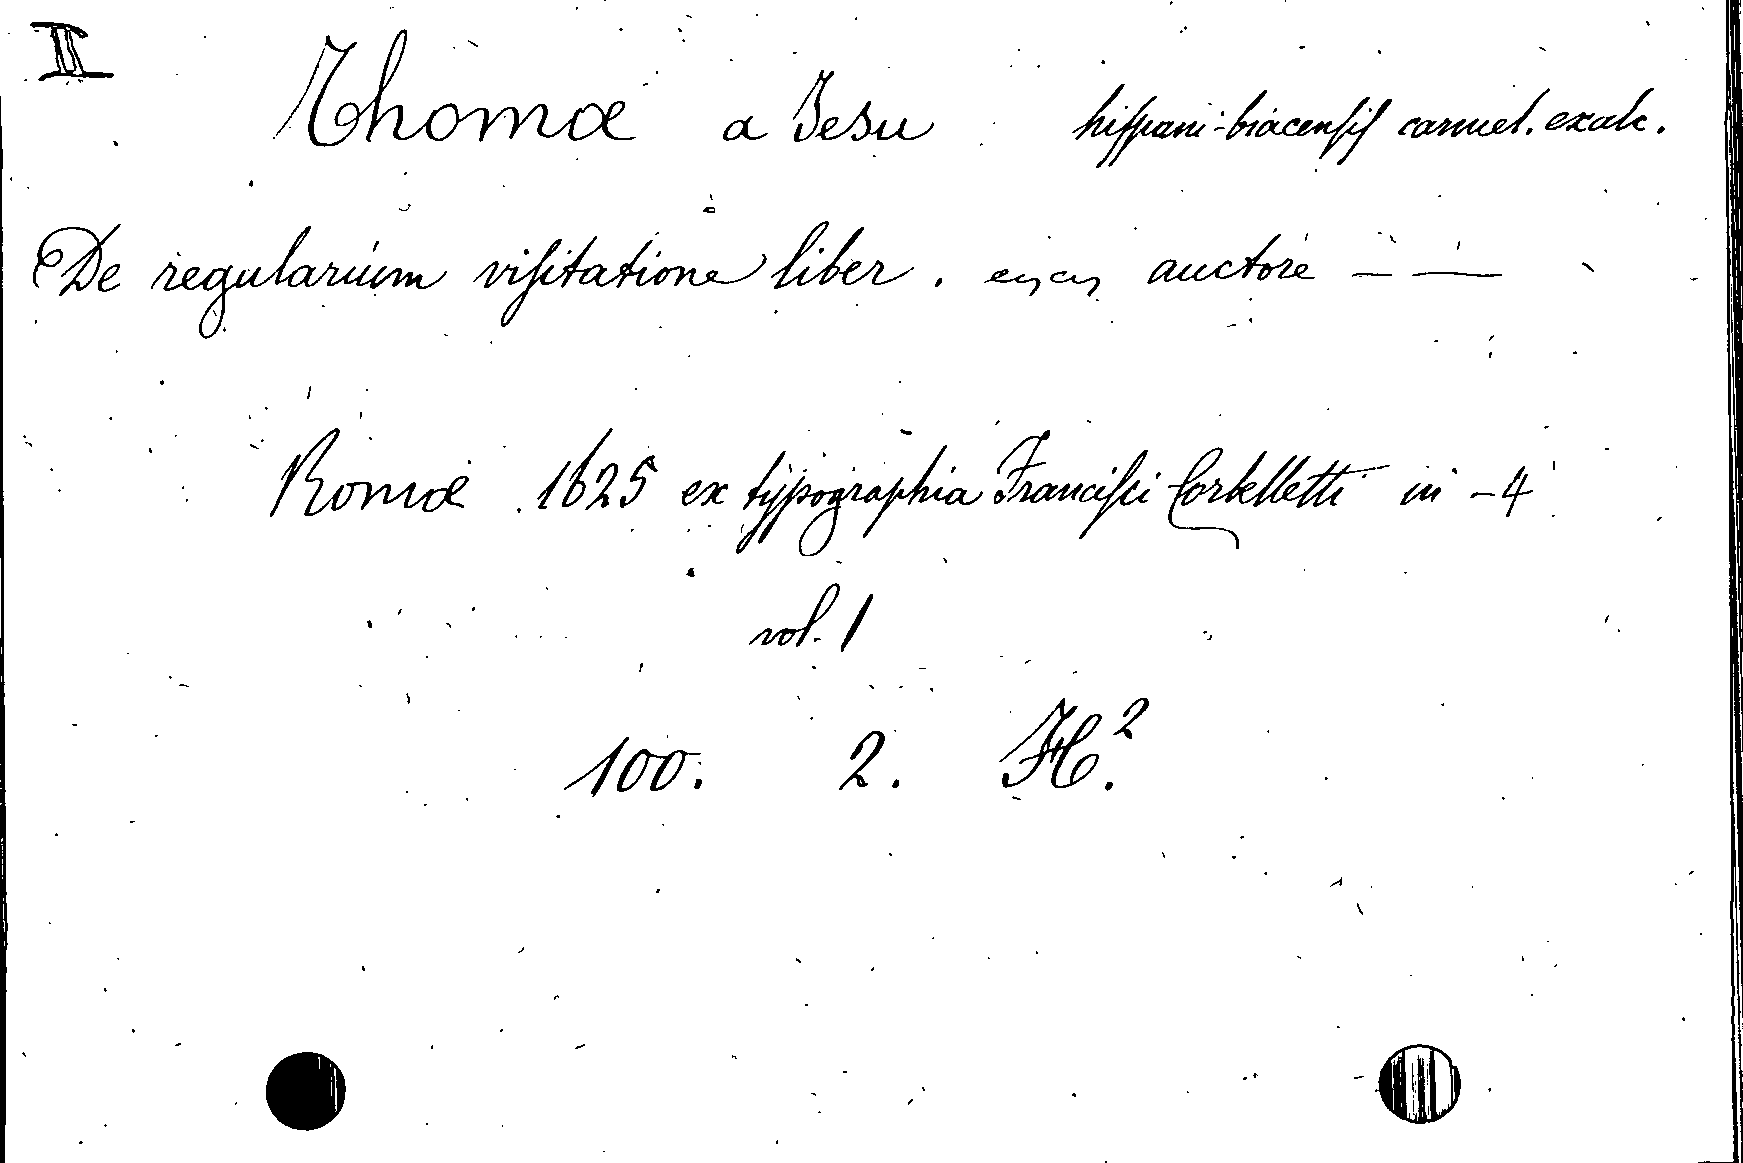 II
Thomæ a Jesu hiſpani-biacenſiſ carmel. excalc.
De regularium viſitatione liber . auctore — —
Romæ 1625 ex typographia Franciſci Corbelletti in -4
vol. 1
100. 2. H.²